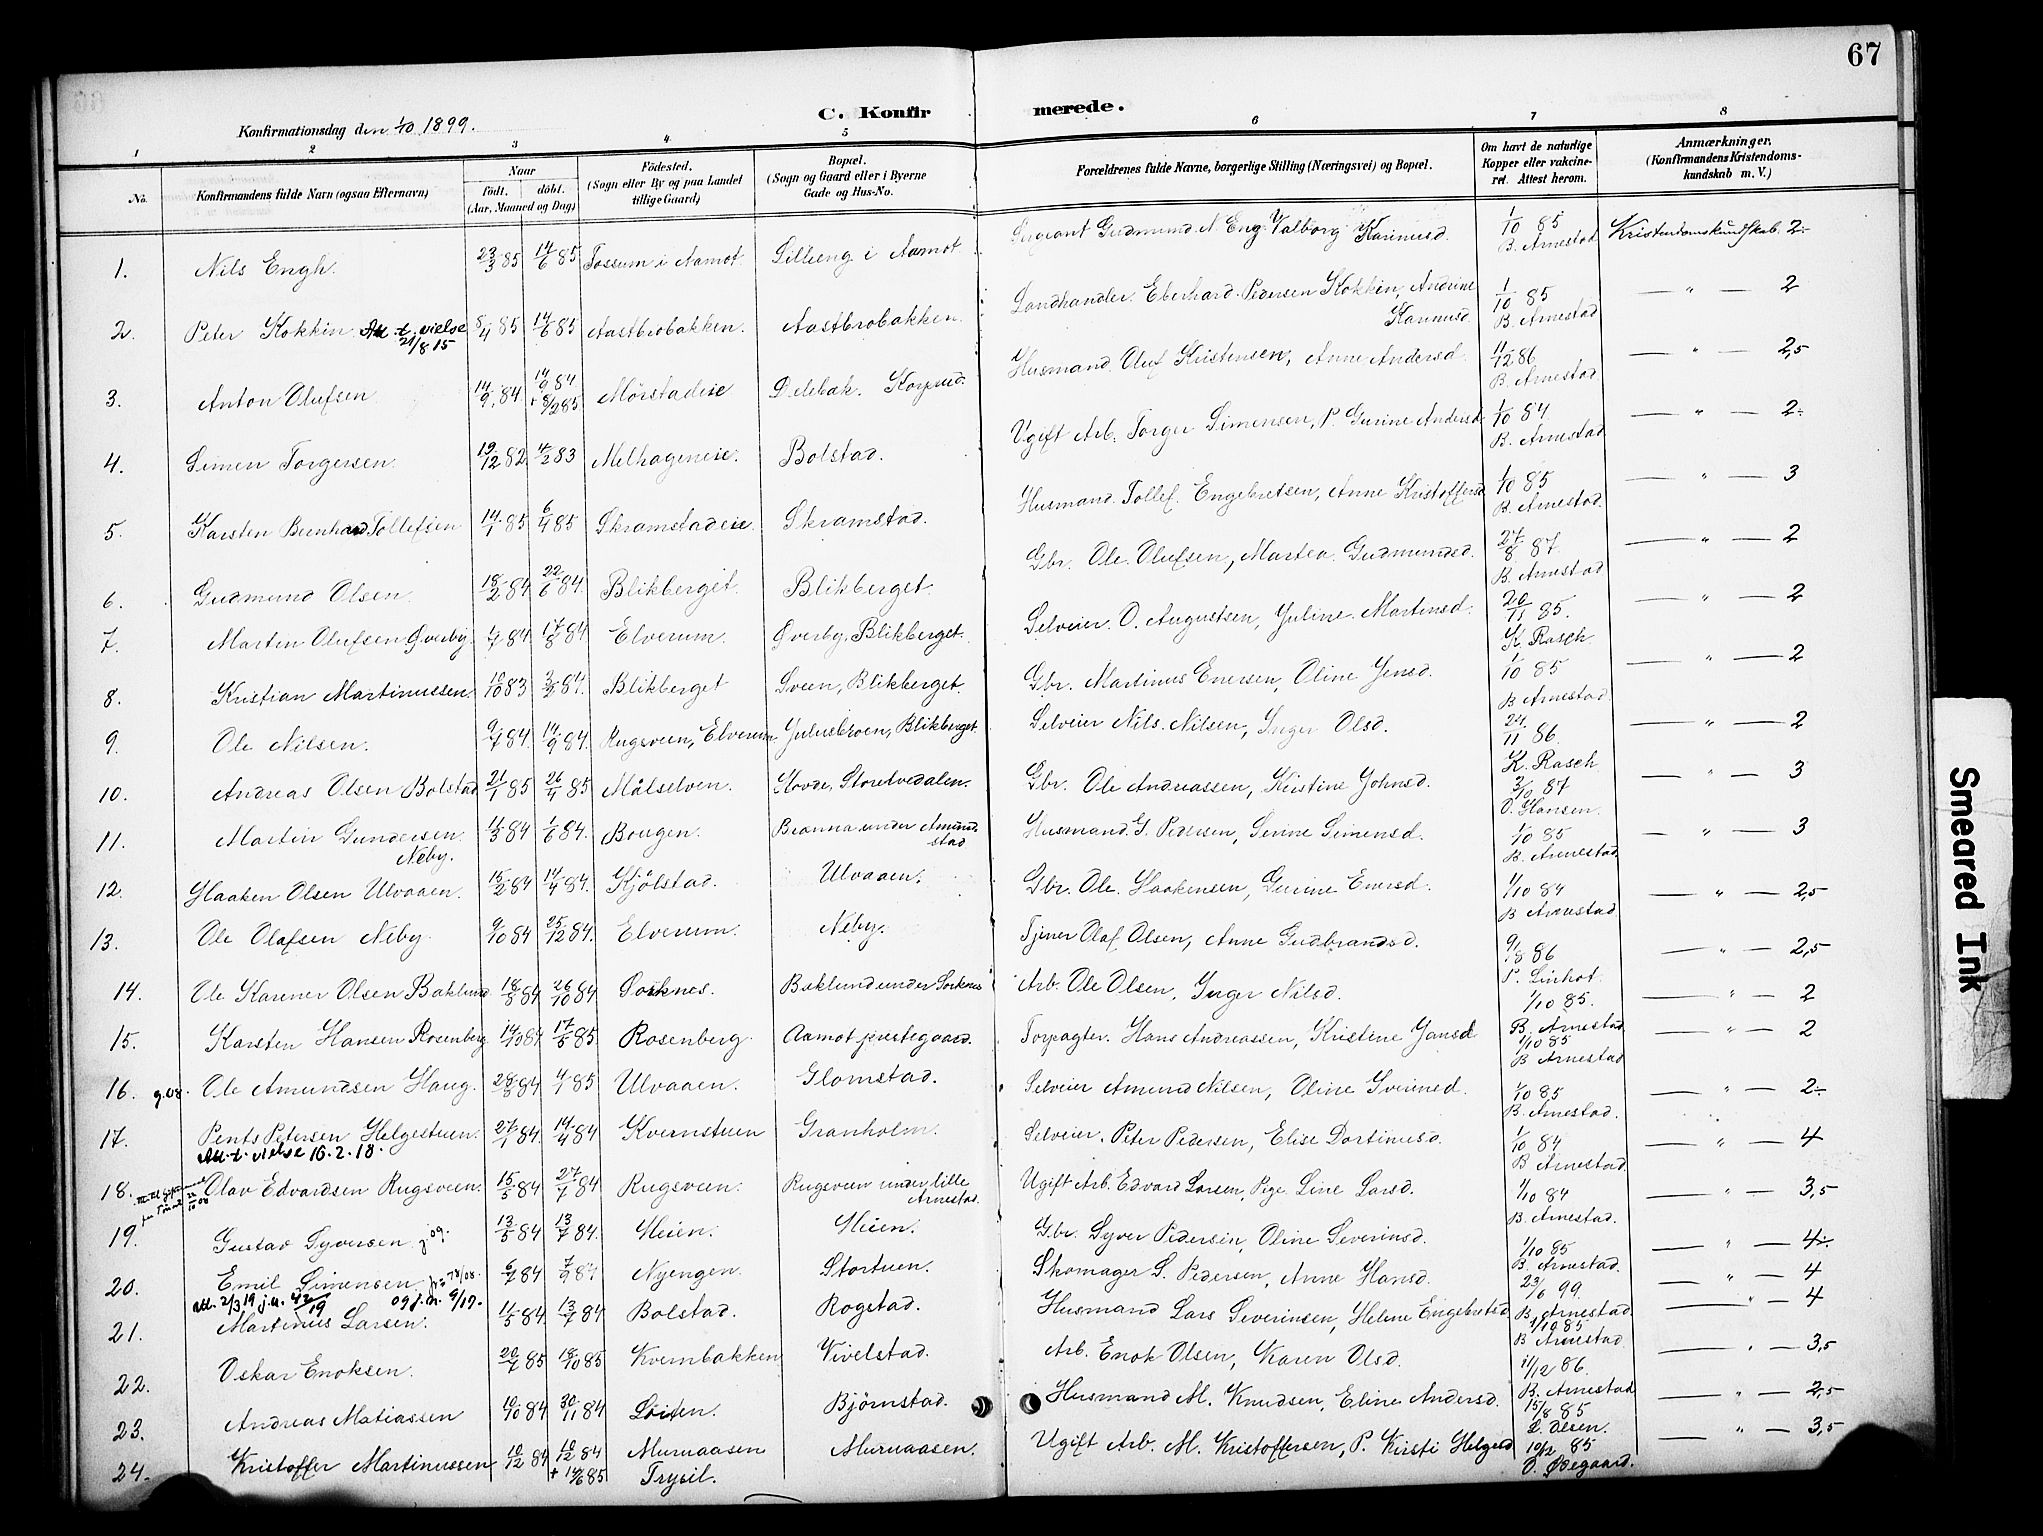 67
C. Konfirmerede.
Konfirmationsdag den 1/10 1899.
1 2 3 4 5 6 7 8
No. Konfirmandens fulde Navn (ogsaa Efternavn) Naar født. døbt. (Aar, Maaned og Dag) Fødested. (Sogn eller By og paa Landet tillige Gaard) Bopæl. (Sogn og Gaard eller i Byerne Gade og Hus-No. Forældrenes fulde Navne, borgerlige Stilling (Næringsvei) og Bopæl. Om havt de naturlige Kopper eller vakcineret. Attest herom. Anmærkninger. (Konfirmandens Kristendomskundskab m. V.)
1. Nils Engh. 23/3 85 14/6 85 Fossum i Aamot. Lilleeng i Aamot. Sergeant Gudmund N. Eng. Valborg Karinusd. 1/10 85 B. Arnestad Kristendomskundskab 2-
2. Peter Kokkin Att. t. vielse 21/8 15 8/4 85 14/6 85 Aastbrobakken. Aastbrobakken. Landhandler Eberhard Pedersen Kokkin, Andrine Karinusd. 1/10 85 B. Arnestad — " — 2
3. Anton Olufsen 14/9 84 14/9 84 + 8/2 85 Mørstadeie Delebak. Husmand Oluf Kristensen, Anne Andersd. 11/12 86 B. Arnestad — " — 2,5
4. Simen Torgersen. 19/12 82 4/2 83 Melhageneie. Bolstad. Ugift Arb. Torger Simensen, P. Gurine Andersd. 1/10 84 B. Arnestad — " — 2-
5. Karsten Bernhard Tollefsen 14/1 85 6/4 85 Skramstadeie. Skramstad. Husmand Tollef Engebretsen, Anne Kristoffersd 1/10 85 B. Arnestad. — " — 3
6. Gudmund Olsen. 18/2 84 22/6 84. Blikberget. Blikberget. Gbr. Ole Olufsen, Martea Gudmundsd. 27/8 87 B. Arnestad — " — 2
7. Martin Olufsen Øverby. 84 17/8 84 Elverum. Øverby, Blikberget. Selveier O. Augustsen, Juline Martinsd. 26/11 85. K. Rasch — " — 2
8. Kristian Martinussen 10/10 83 84. Blikberget Sveen, Blikberget. Gbr. Martinus Enersen, Oline Jensd. 1/10 85 B Arnestad — " — 2
9. Ole Nilsen. 9/7 84. 14/9 84. Rugsveen, Elverum Juliusbroen, Blikberget. Selveier Nils Nilsen, Inger Olsd. 24/11 86. K. Rasch — " — 2
10. Andreas Olsen Bolstad 21/1 85 26/4 85 Målselven. Hovde, Storelvedalen. Gbr. Ole Andreassen, Kristine Johnsd. 3/10 87 O. Hansen. — " — 3
11. Martin Gundersen Neby. 11/3 84 1/6 84. Bougen. Brænna under Amundstad Husmand G. Pedersen, Serine Simensd. 1/10 85 B. Arnestad. — " — 3
12. Haaken Olsen Ulvaaen. 15/2 84 14/4 84. Kjølstad. Ulvaaen. Gbr. Ole Haakensen, Gurine Enersd. 1/10 84 B Arnestad — " — 2,5
13. Ole Olafsen Neby. 9/10 84 25/12 84. Elverum. Neby. Tjener Olaf Olsen, Anne Gudbrandsd. 9/8 86 P. Linhot. — " — 2,5
14. Ole Karener Olsen Baklund 18/8 84 26/10 84 Sorknes. Baklund under Sorknes Arb. Ole Olsen, Inger Nilsd. 1/10 85. B. Arnestad — " — 2
15. Karsten Hansen Rosenberg 14/10 84 17/5 85 Rosenberg. Aamot prestegaard. Forpagter. Hans Andreassen, Kristine Jansd 1/10 85 B Arnestad — " — 2
16. g. 08. Ole Amundsen Haug. 28/8 84 4/1 85 Ulvaaen. Glomstad. Selveier Amund Nilsen, Oline Sveined. 1/10 85 B. Arnestad. — " — 2-
17. Pents Petersen Helgestuen. Att. t. vielse 16.2.18. 27/1 84. 14/4 84 Kvernstuen Granholm. Selveier. Peter Pedersen, Elise Dortinusd. 1/10 84 B Arnestad. — " — 4
18. Olav Edvardsen Rugsveen. 15/5 84 27/7 84 Rugsveen. Rugsveen under lille Arnestad. Ugift Arb. Edvard Larsen, Pige Line Larsd. 1/10 84 B. Arnestad. — " — 3,5
19. Gustav Syversen g 09. 13/5 84 13/7 84. Heien. Heien. Gbr. Syver Pedersen, Oline Severinsd. 1/10 85 B. Arnestad. — " — 4-
20. Emil Simensen att. 2/3 19 6/7 84 7/9 84 Nyengen. Stortuen. Skomager S. Pedersen, Anne Hansd. 23/6 99. B. Arnestad — " — 4
21. Martinus Larsen. 11/5 84 13/7 84 Bolstad. Rogstad. Husmand Lars Severinsen, Helene Engebretsd 1/10 85 B Arnestad — " — 4
22. Oskar Enoksen. 20/7 85 18/10 85 Kvernbakken Kivelstad. Arb. Enok Olsen, Karen Olsd. 11/12 86. B. Arnestad — " — 3,5
23. Andreas Matiassen 10/10 84 30/11 84 Løiten. Bjørnstad. Husmand M. Knudsen, Eline Andersd. 15/8 85 L. Olsen. — " — 2,5
24. Kristoffer Martinussen 10/12 84 10/12 84 + 14/6 85 Muruaasen Trysil. Muruaasen. Ugift Arb. M. Kristoffersen, P. Kirsti Helgesd 10/12 85 O. Ødegaard. — " — 3,5
Smeared Ink